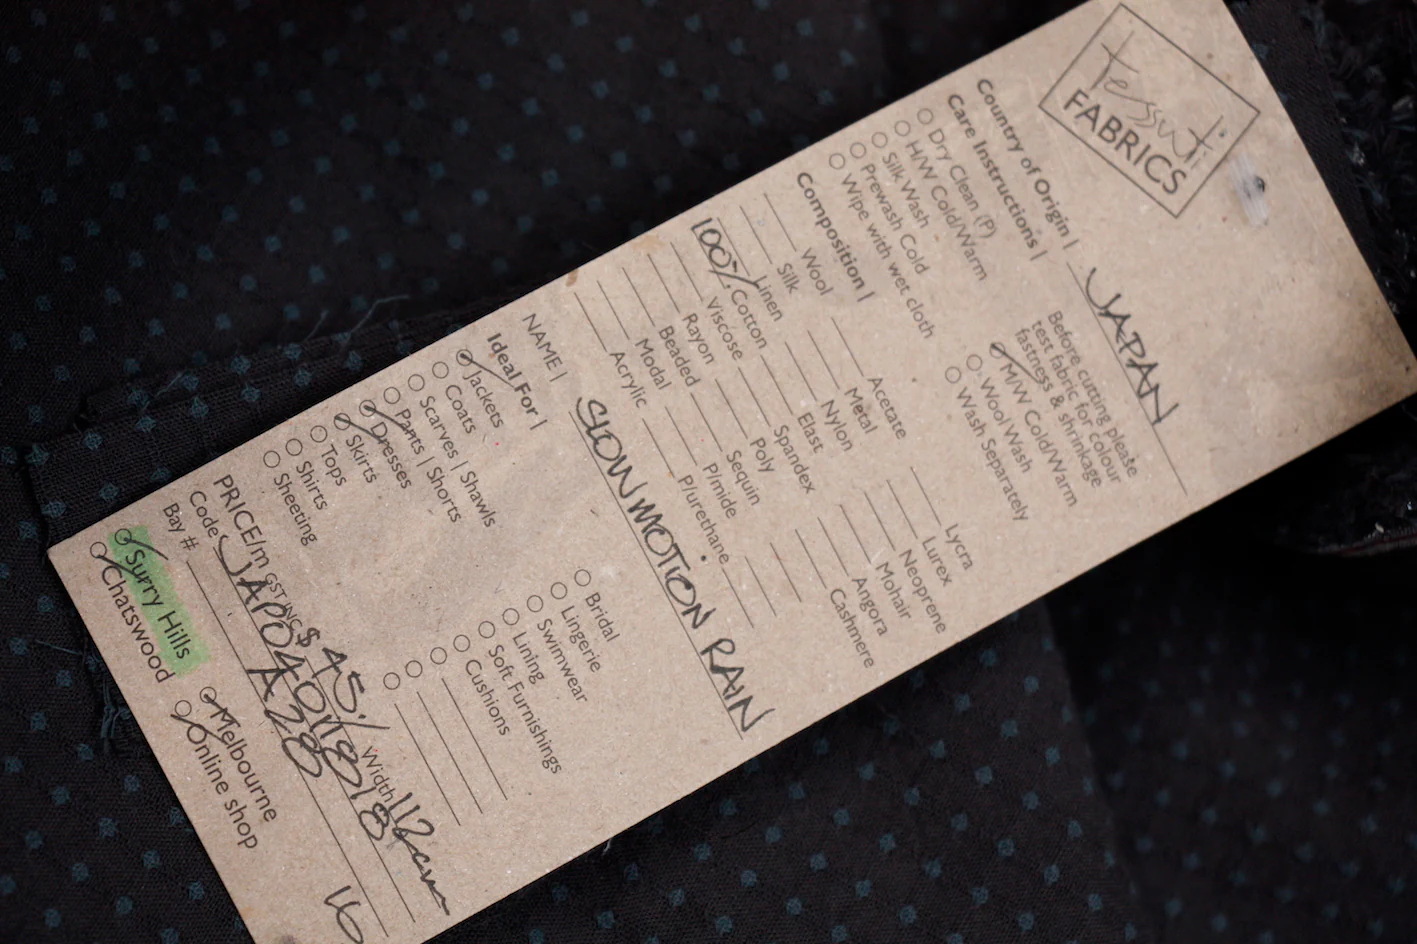 tessuti
FABRICS
Country of Origin | JAPAN
Care Instructions | Before cutting please
test fabric for colour
fastness & shrinkage
Dry Clean (P) M/W Cold/Warm
H/W Cold/Warm Wool Wash
Silk Wash Wash Separately
Prewash Cold
Wipe with wet cloth
Composition |
Wool Acetate Lycra
Silk Metal Lurex
Linen Nylon Neoprene
100% Cotton Elast Mohair
Viscose Spandex Angora
Rayon Poly Cashmere
Beaded Sequin
Modal P/mide
Acrylic P/urethane
NAME | SLOW MOTION RAIN
Ideal For |
Jackets Bridal
Coats Lingerie
Scarves | Shawls Swimwear
Pants | Shorts Lining
Dresses Soft Furnishings
Skirts Cushions
Tops
Shirts
Sheeting
PRICE/m GST INC $ 45./ Width 112cm
Code
Bay # A28 16
Surry Hills Melbourne
Chatswood Online shop